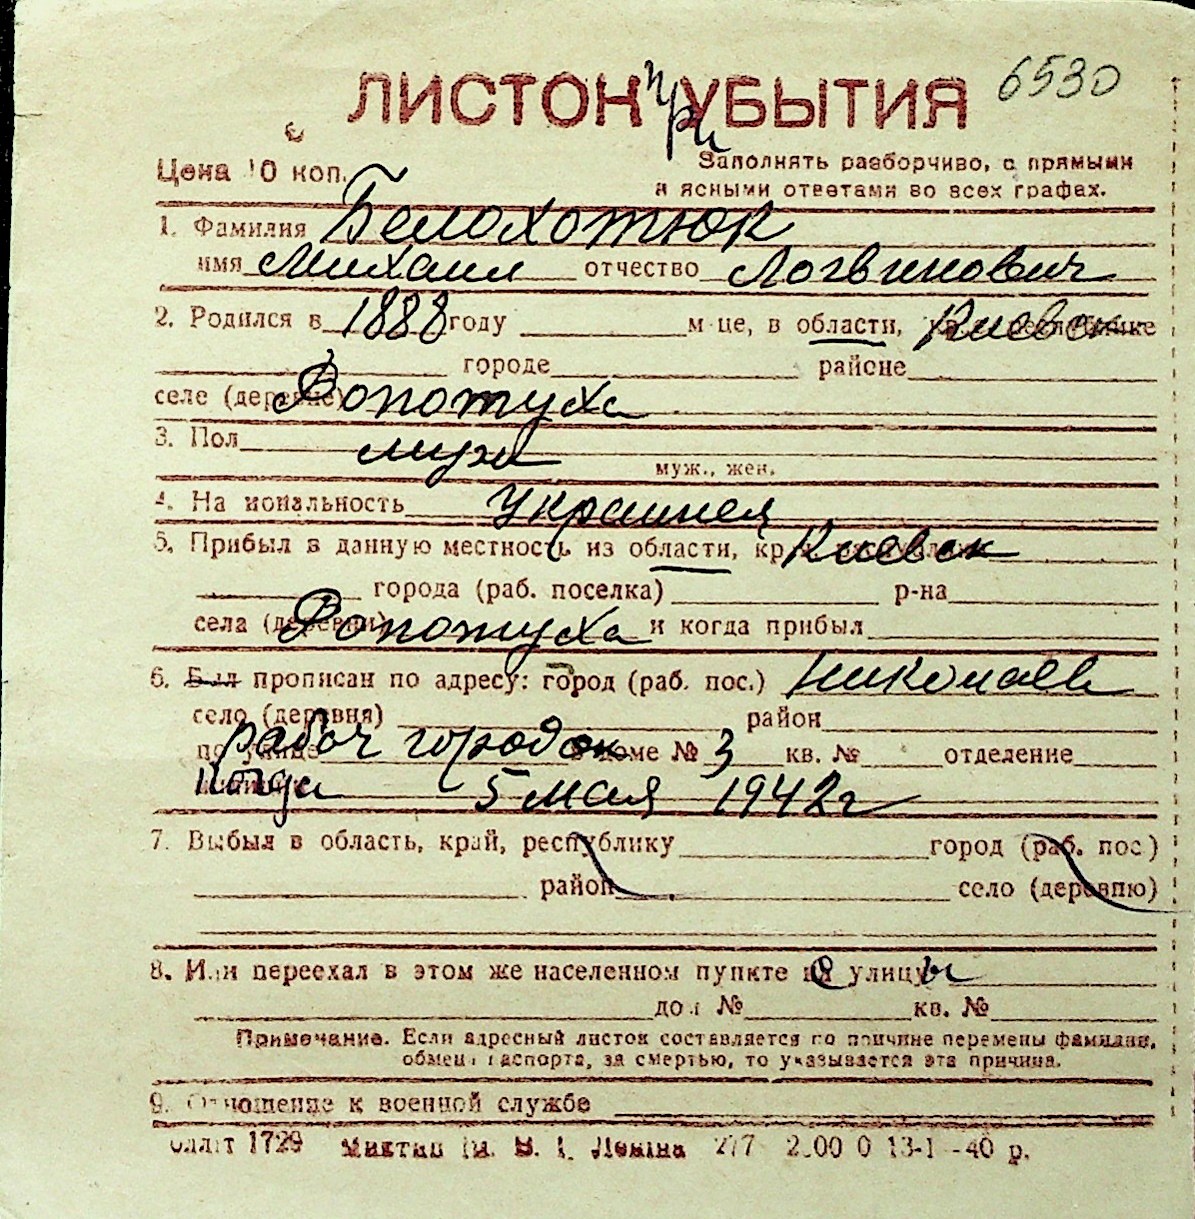 ЛИСТОК при УБЫТИЯ 6530
Цена 10 коп. Заполнять разборчиво, с прямыми
и ясными ответами во всех графах.
1. Фамилия Белохотюк
имя Михаил отчество Логвинович
2. Родился в 1888 году м-це, в области, Киевск
городе районе
селе (деревне) Ропотуха
3. Пол муж
муж., жен.
4. Национальность украинец
5. Прибыл в данную местность из области, Киевск
города (раб. поселка) р-на
села (деревни) Ропотуха и когда прибыл
6. Был прописан по адресу: город (раб. пос.) Николаев
село (деревня) район
по улице рабоч городок в доме № 3 кв. № отделение
Когда 5 мая 1942 г
7. Выбыл в область, край, республику город (раб. пос.)
район село (деревню)
8. Или переехал в этом же населенном пункте с улицы
дом № кв. №
Примечание. Если адресный листок составляется по причине перемены фамилии,
обмена паспорта, за смертью, то указывается эта причина.
9. Отношение к военной службе
1729 им. В. І. Леніна 13-1 -40 р.